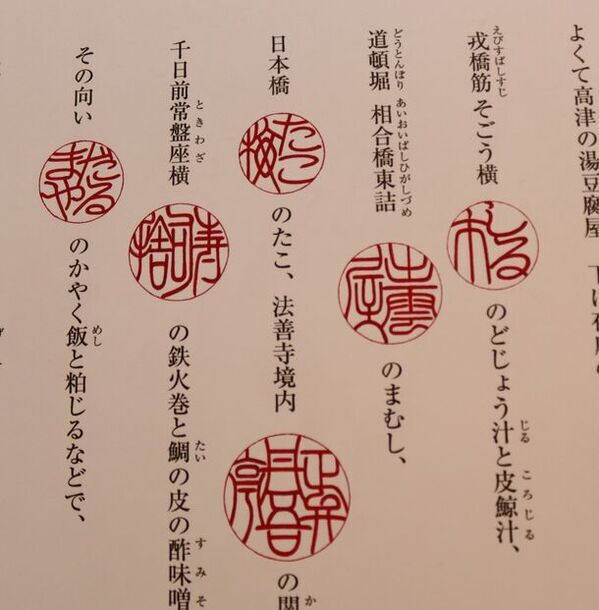 よくて高津の湯豆腐屋
えびすばしすじ じる ころじる
戎橋筋そごう横 しる市 のどじょう汁と皮鯨汁、
どうとんぼり あいおいばしひがしづめ
道頓堀 相合橋東詰 出雲屋 のまむし、
日本橋 たこ梅 のたこ、法善寺境内 正弁丹吾亭 の関
ときわざ たい すみそ
千日前常盤座横 寿司捨 の鉄火巻と鯛の皮の酢味噌
めし
その向い だるまや のかやく飯と粕じるなどで、